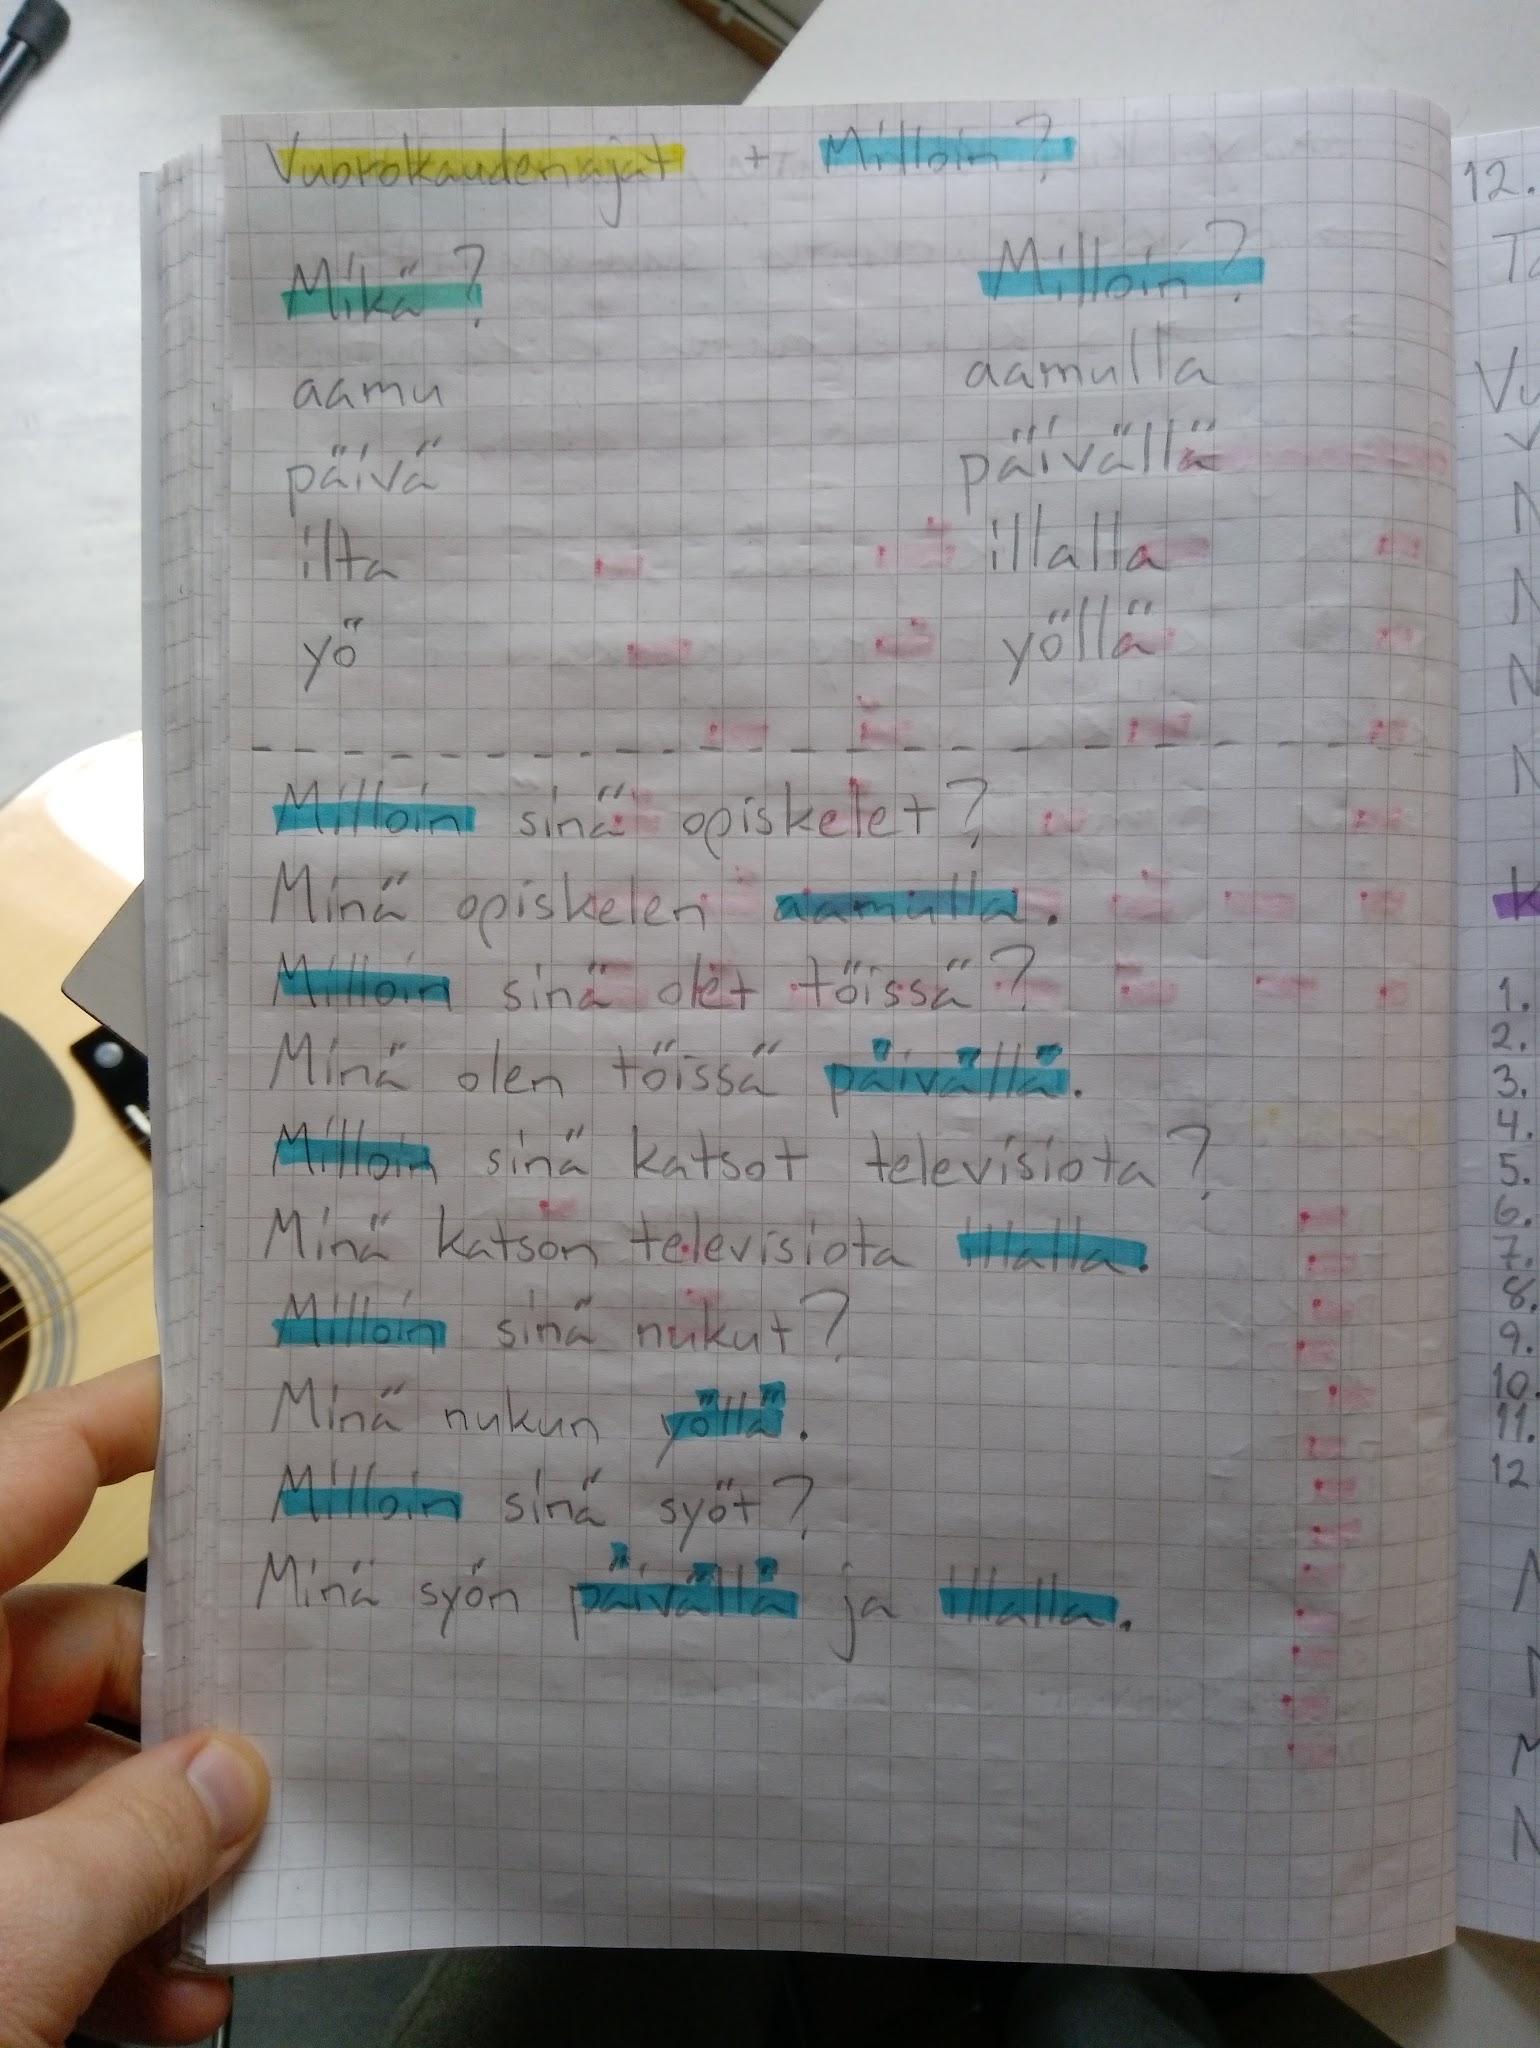 Vuorokaudenajat + Milloin?
Mikä? Milloin?
aamu aamulla
päivä päivällä
ilta illalla
yö yöllä
Milloin sinä opiskelet?
Minä opiskelen aamulla.
Milloin sinä olet töissä?
Minä olen töissä päivällä.
Milloin sinä katsot televisiota?
Minä katson televisiota illalla.
Milloin sinä nukut?
Minä nukun yöllä.
Milloin sinä syöt?
Minä syön päivällä ja illalla.
12.
1.
2.
3.
4.
5.
6.
7.
8.
9.
10.
11.
12